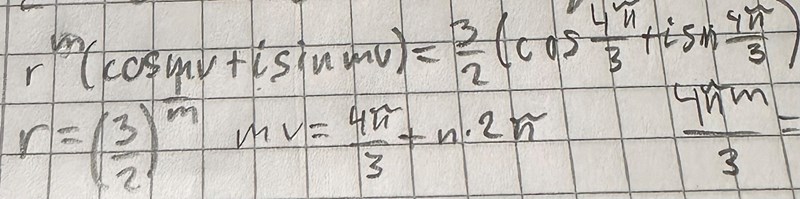 r^m(cos mv + i sin mv) = 3/2 (cos 4π/3 + i sin 4π/3)
r = (3/2)^(1/m)   mv = 4π/3 + n·2π   4πm/3 =